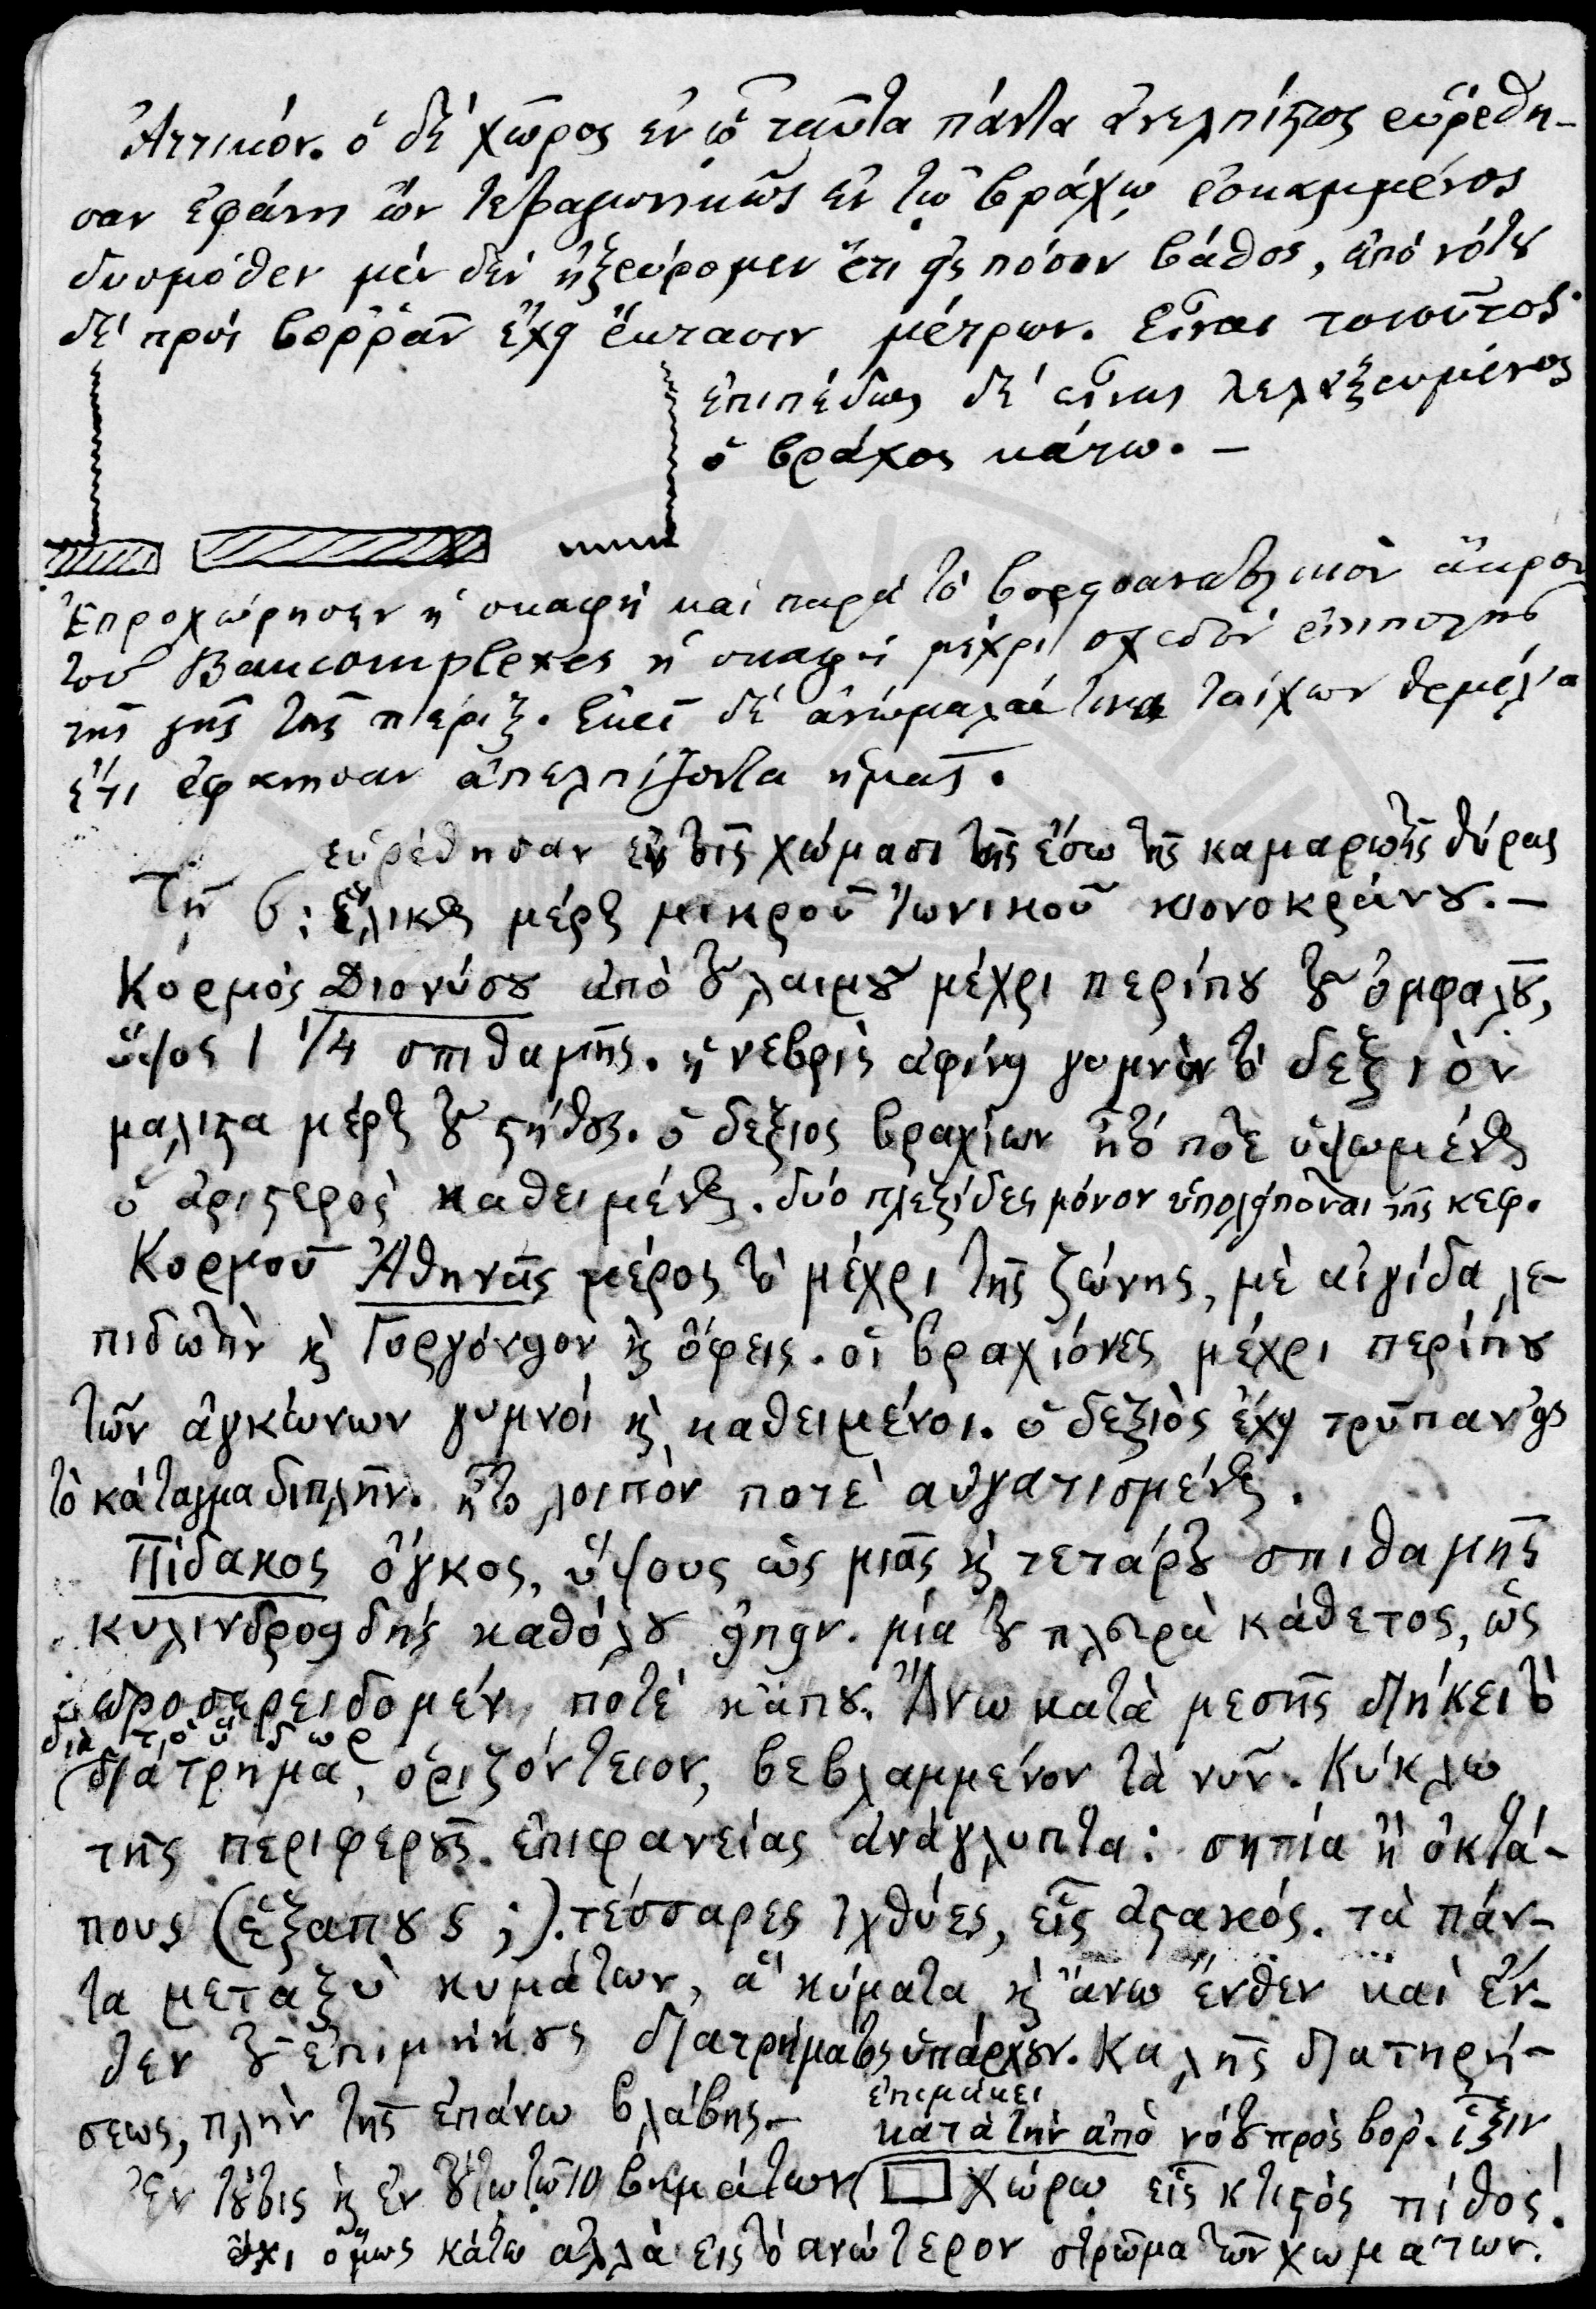 Ἀττικόν. ὁ δὲ χῶρος ἐν ᾧ ταῦτα πάντα ἀνελπίστως εὑρέθη-
σαν ἐφάνη ὢν τετραγωνικῶς ἐν τῷ βράχῳ ἐσκαμμένος
δυσμόθεν μὲν δὲν ἠξεύρομεν ἔτι εἰς πόσον βάθος, ἀπὸ νότου
δὲ πρὸς βορρᾶν ἔχει ἔκτασιν μέτρων. Εἶναι τοιοῦτος·
ἐπιπέδως δὲ εἶναι λελαξευμένος
ὁ βράχος κάτω. –
Ἐπροχώρησεν ἡ σκαφὴ καὶ παρὰ τὸ βορειοανατολικὸν ἄκρον
τοῦ Baucomplexes ἡ σκαφὴ μέχρι σχεδὸν ἐπιπολῆς
τῆς γῆς τῆς πέριξ. Ἐκεῖ δὲ ἀνώμαλά τινα τοίχων θεμέλια
ἔτι ἐφάνησαν ἀπελπίζοντα ἡμᾶς.
εὑρέθησαν ἐν τοῖς χώμασι τῆς ἔσω τῆς καμαρωτῆς θύρας
Τῇ 6: ἕλικος μέρος μικροῦ Ἰωνικοῦ κιονοκράνου. –
Κορμὸς Διονύσου ἀπὸ τοῦ λαιμοῦ μέχρι περίπου τοῦ ὀμφαλοῦ,
ὕψος 1 1/4 σπιθαμῆς. ἡ νεβρὶς ἀφίνει γυμνὸν τὸ δεξιὸν
μάλιστα μέρος τοῦ στήθους. ὁ δεξιὸς βραχίων ἦτό ποτε ὑψωμένος
ὁ ἀριστερὸς καθειμένος. δύο πλεξίδες μόνον ὑπολείπονται τῆς κεφ.
Κορμοῦ Ἀθηνᾶς μέρος τὸ μέχρι τῆς ζώνης, μὲ αἰγίδα λε-
πιδωτὴν καὶ Γοργόνειον καὶ ὄφεις. οἱ βραχίονες μέχρι περίπου
τῶν ἀγκώνων γυμνοὶ καὶ καθειμένοι. ὁ δεξιὸς ἔχει τρῦπαν εἰς
τὸ κάταγμα διπλῆν. ἦτο λοιπὸν ποτὲ αὐγατισμένος.
Πίδακος ὄγκος, ὕψους ὡς μιᾶς καὶ τετάρτου σπιθαμῆς
κυλινδροειδὴς καθόλου εἰπεῖν. μία τοῦ πλευρὰ κάθετος, ὡς
προσερειδομένη ποτὲ κάπου. Ἄνω κατὰ μεσῆς διήκει τὸ
διὰ τὸ ὕδωρ
διάτρημα, ὁριζόντειον, βεβλαμμένον τὰ νῦν. Κύκλω
τῆς περιφεροῦς ἐπιφανείας ἀνάγλυπτα: σηπία ἢ ὀκτά-
πους (ἑξάπους;). τέσσαρες ἰχθύες, εἷς ἀστακός. τὰ πάν-
τα μεταξὺ κυμάτων, ἃ κύματα καὶ ἄνω ἔνθεν καὶ ἔν-
θεν τοῦ ἐπιμήκους διατρήματος ὑπάρχουν. Καλῆς διατηρή-
σεως, πλὴν τῆς ἐπάνω βλάβης. –
ἐπιμήκει
κατὰ τὴν ἀπὸ νότου πρὸς βορ. ἕξιν
Ἐν τούτοις καὶ ἐν τούτῳ τῷ 10 βημάτων χώρῳ εἷς κτιστὸς πίθος!
ὄχι ὅμως κάτω ἀλλὰ εἰς τὸ ἀνώτερον στρῶμα τῶν χωμάτων.